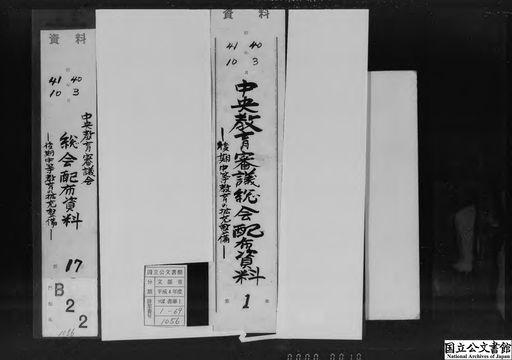 資料
41 40
10 3
中央教育審議会
総会配布資料
―後期中等教育の拡充整備―
17
B
2
2
資料
41 40
10 3
中央教育審議総会配布資料
―後期中等教育の拡充整備―
1
国立公文書館
分類
文部省
平成4年度
つくば書庫1
1-69
1056
国立公文書館
National Archives of Japan